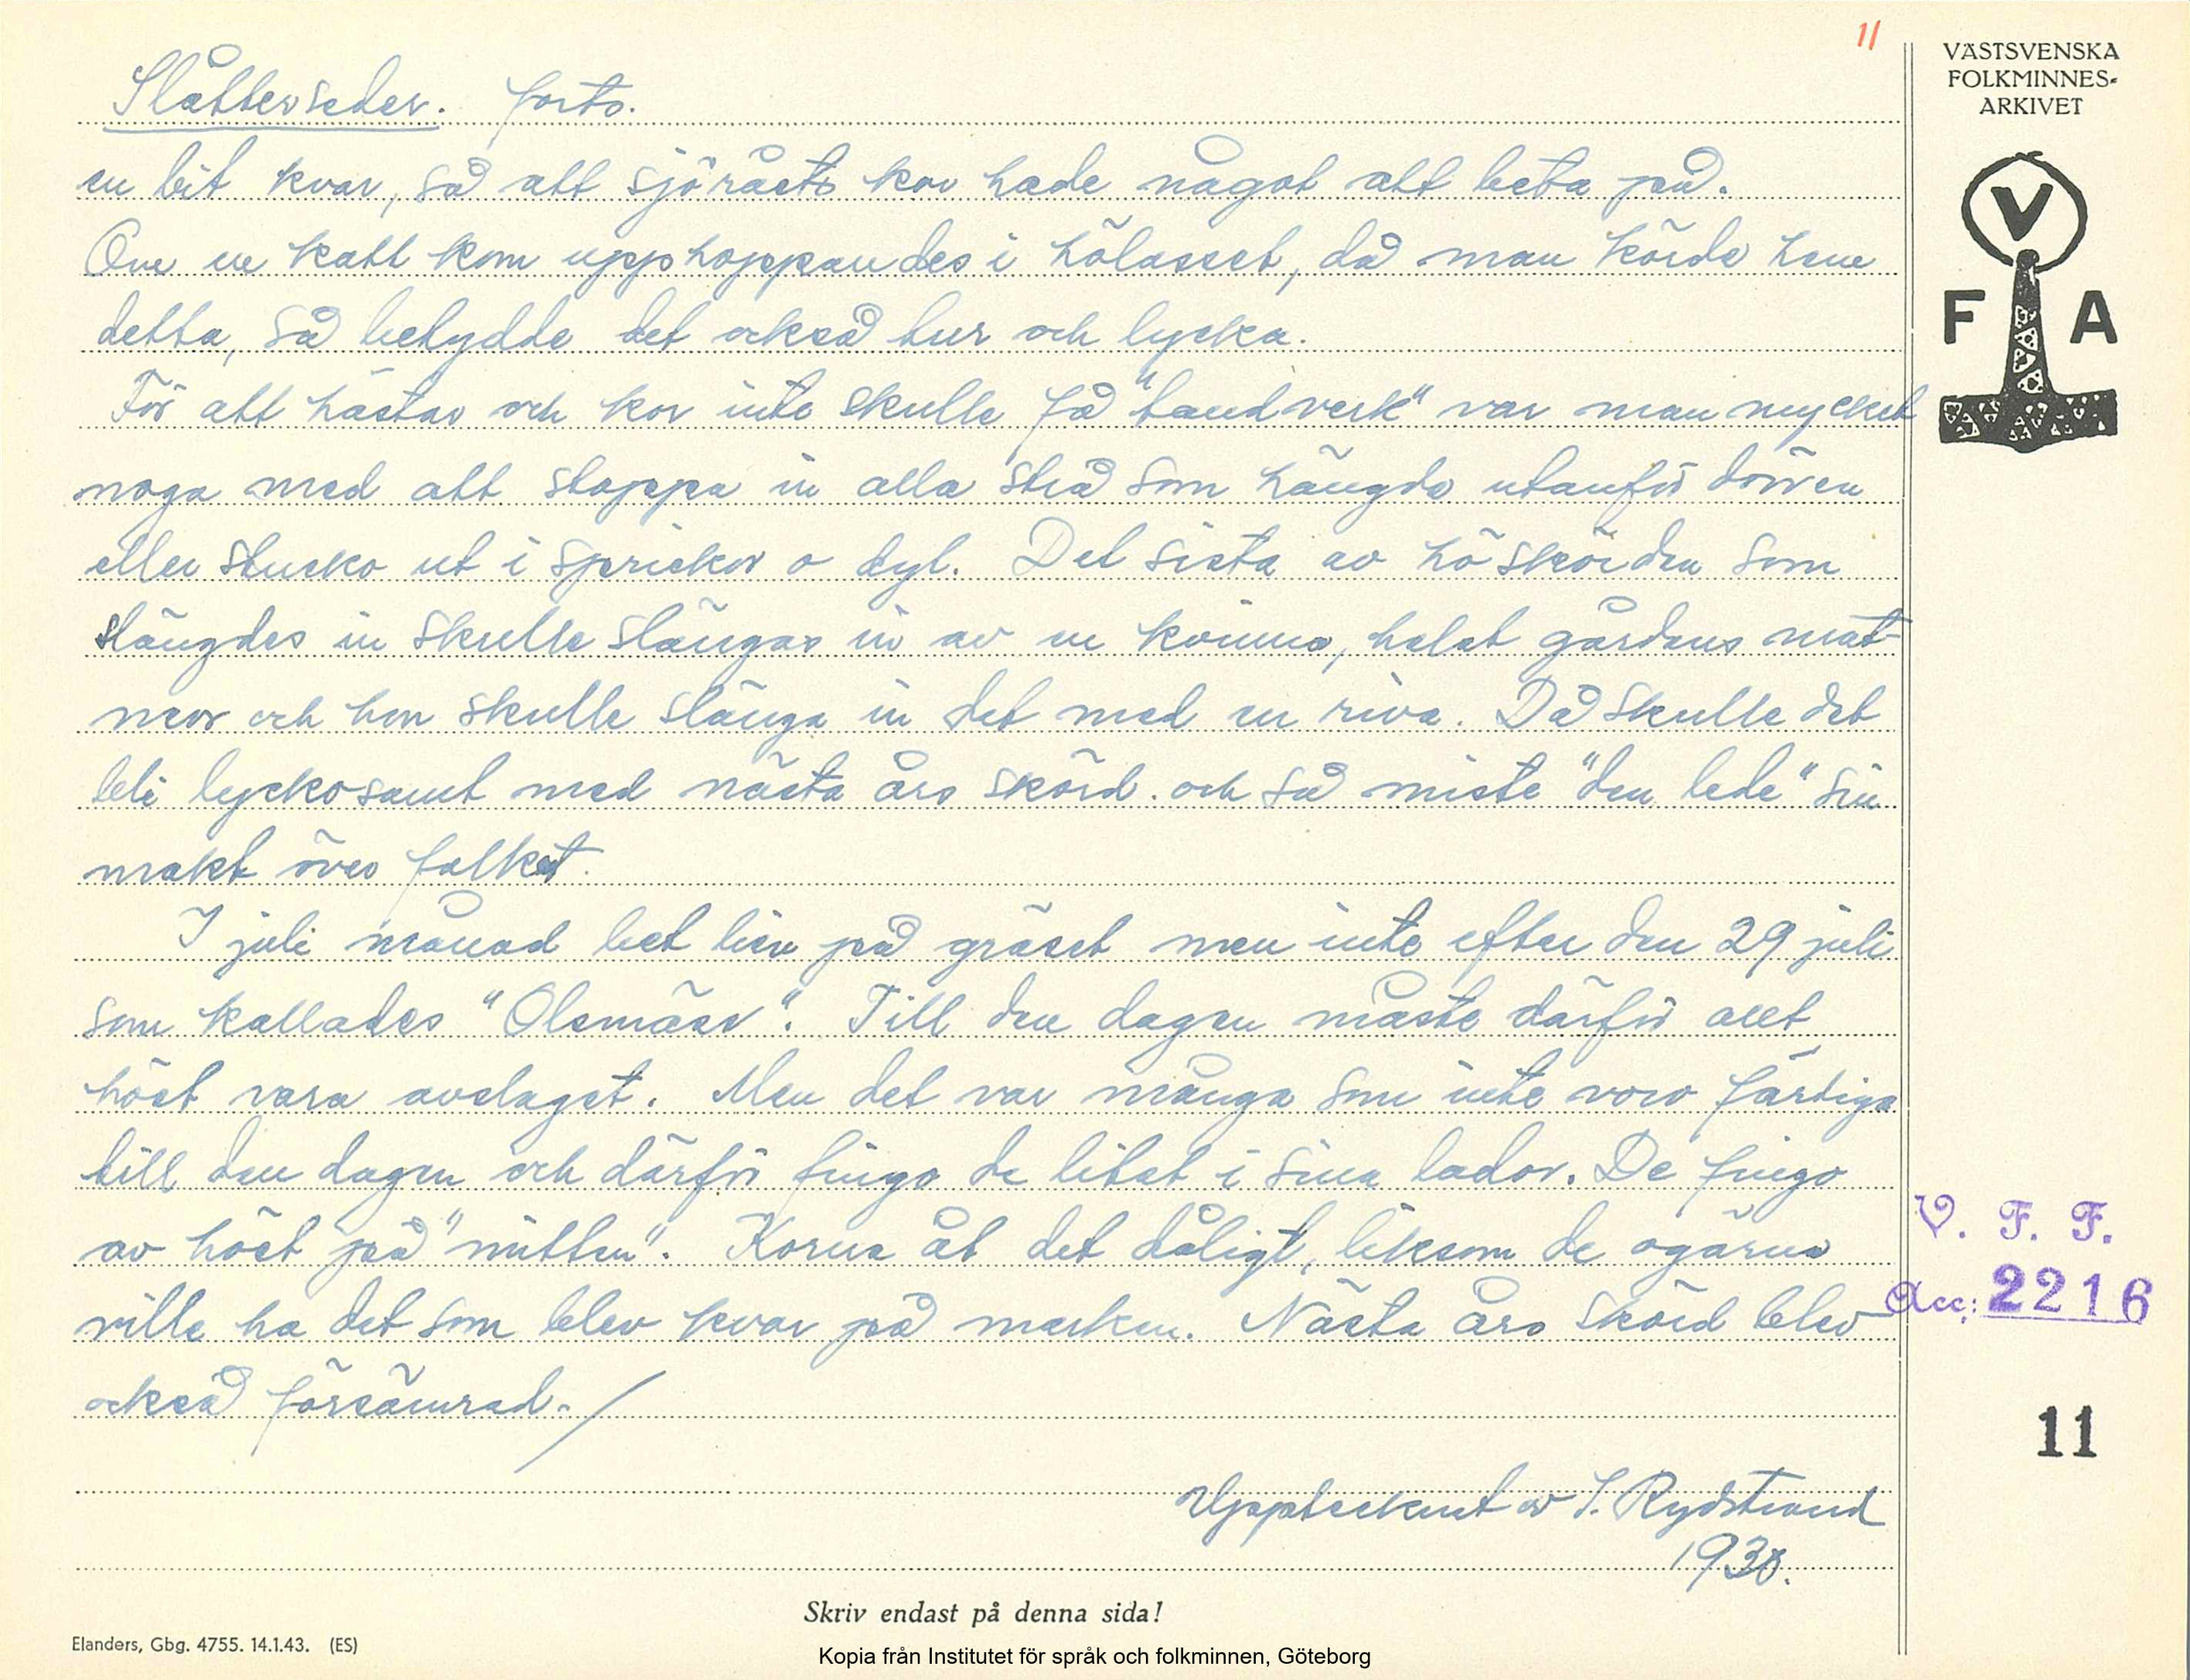 11
Slåtterseder. forts.
en bit kvar, så att sjöråets kor hade något att beta på.
Om en katt kom upphoppandes i hölasset, då man körde hem
detta, så betydde det också tur och lycka.
För att hästar och kor inte skulle få "tandverk" var man mycket
noga med att stoppa in alla strå som hängde utanför dörren
eller stucko ut i sprickor o dyl. Det sista av höskörden som
slängdes in skulle slängas in av en kvinna, helst gårdens mat-
mor och hon skulle slänga in det med en riva. Då skulle det
bli lyckosamt med nästa års skörd. och så miste "den lede" sin
makt över folket.
I juli månad bet lien på gräset men inte efter den 29 juli
som kallades "Olsmäss". Till den dagen måste därför allt
höet vara avslaget. Men det var många som inte voro färdiga
till den dagen och därför fingo de litet i sina lador. De fingo
av höet på "mitten". Korna åt det dåligt, liksom de ogärna
ville ha det som blev kvar på marken. Nästa års skörd blev
också försämrad.
Upptecknat av S. Rydstrand
1930.
VÄSTSVENSKA
FOLKMINNES-
ARKIVET
V
F A
V. F. F.
Acc: 2216
11
Skriv endast på denna sida!
Elanders, Gbg. 4755. 14.1.43. (ES)
Kopia från Institutet för språk och folkminnen, Göteborg